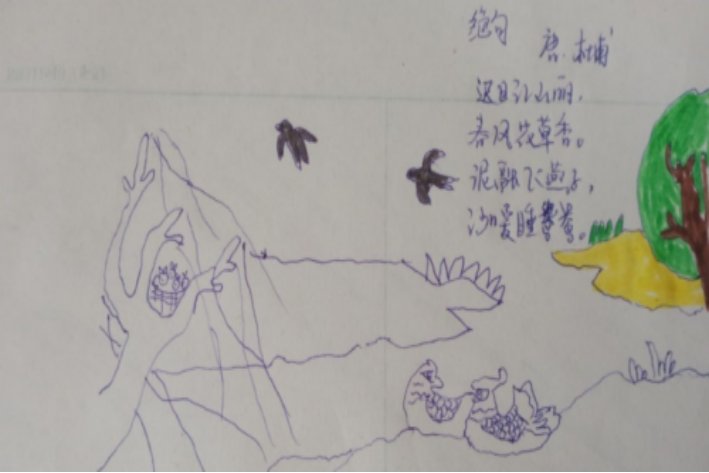 绝句
唐.杜甫
迟日江山丽,
春风花草香。
泥融飞燕子,
沙暖睡鸳鸯。